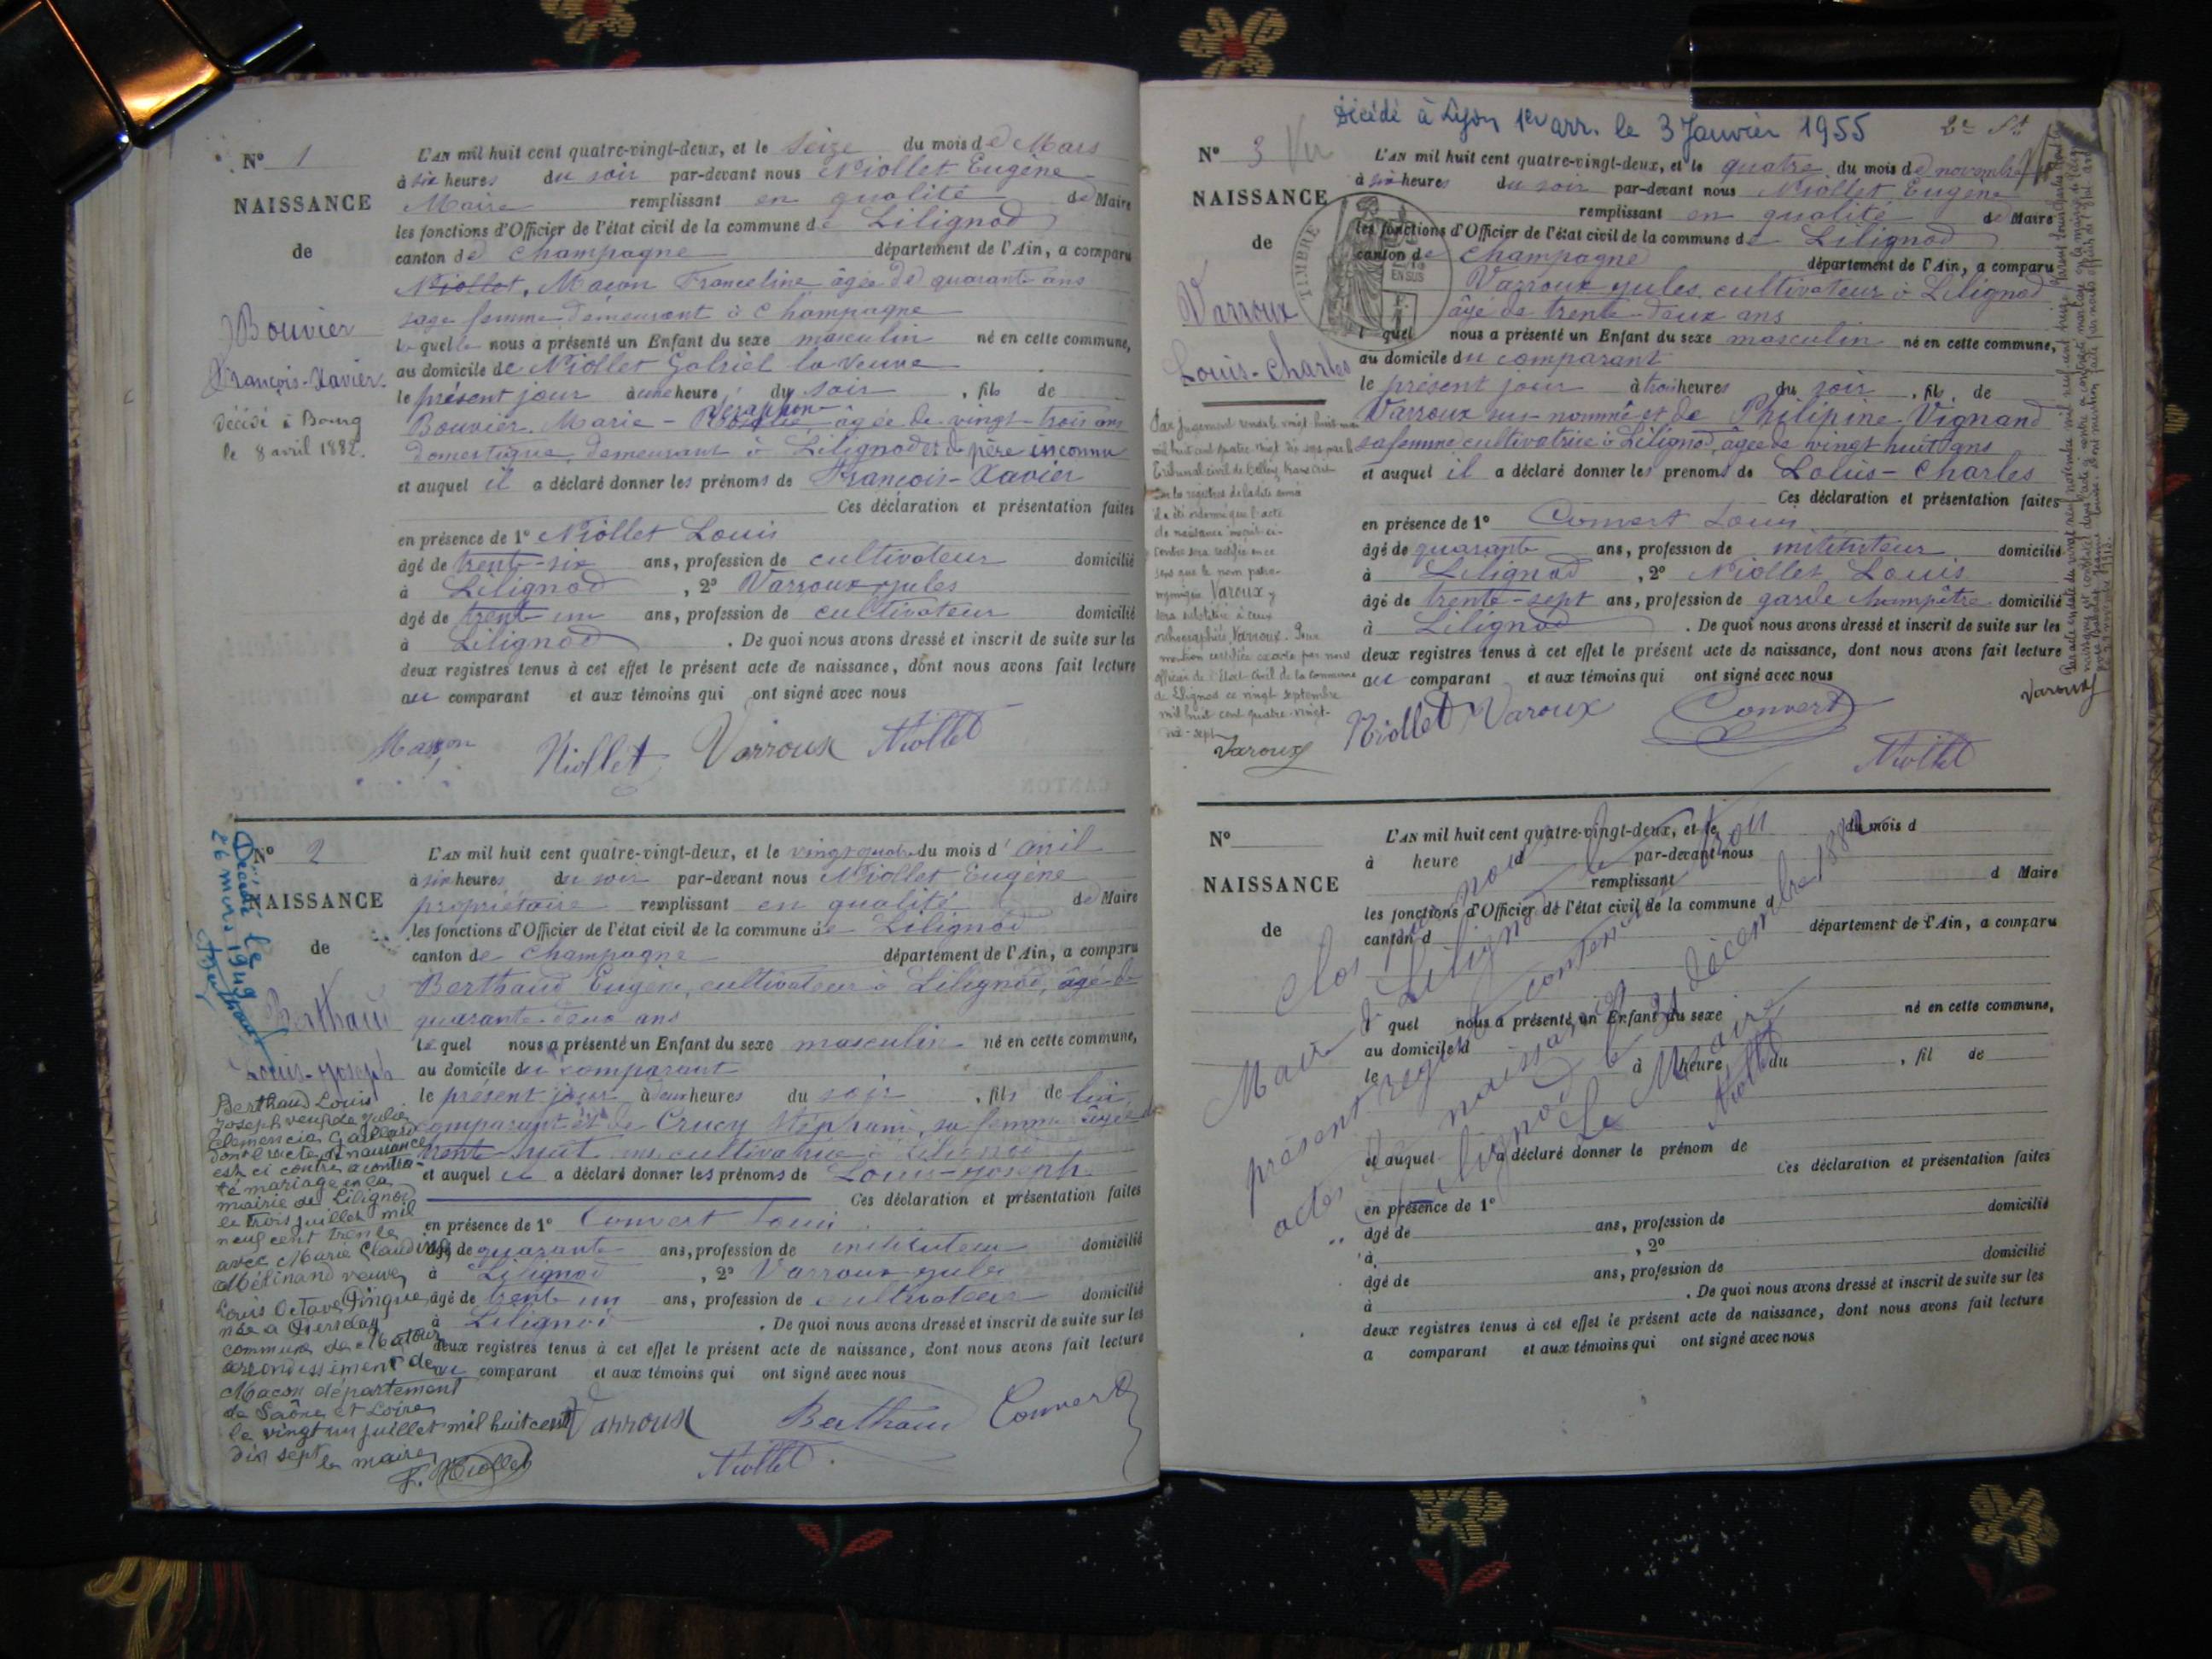 N° 1
NAISSANCE
de
Bouvier
François-Xavier
décédé à Bourg
le 8 avril 1882.
L'AN mil huit cent quatre-vingt-deux, et le seize du mois de Mars
à six heures du soir par-devant nous Niollet Eugène
Maire remplissant en qualité de Maire
les fonctions d'Officier de l'état civil de la commune de Lilignod
canton de Champagne département de l'Ain, a comparu
Niollet, Macon Franceline âgée de quarante ans
sage femme demeurant à Champagne
laquelle nous a présenté un Enfant du sexe masculin né en cette commune,
au domicile de Niollet Gabriel la veuve
le présent jour à une heure du soir, fils de
Bouvier Marie - âgée de vingt-trois ans
domestique, demeurant à Lilignod et de père inconnu
et auquel il a déclaré donner les prénoms de François-Xavier
Ces déclaration et présentation faites
en présence de 1° Niollet Louis
âgé de trente-six ans, profession de cultivateur domicilié
à Lilignod, 2° Varroux Jules
âgé de trente un ans, profession de cultivateur domicilié
à Lilignod. De quoi nous avons dressé et inscrit de suite sur les
deux registres tenus à cet effet le présent acte de naissance, dont nous avons fait lecture
au comparant et aux témoins qui ont signé avec nous
Niollet Varroux Niollet
N° 2
NAISSANCE
de
Berthaud
Louis-Joseph
Décédé le
26 mars 1949
Berthaud Louis
Joseph veuf de Julie
Clemencia Gaillard
dont l'acte de naissance
est ci contre a contrac-
té mariage en la
mairie de Lilignod
le trois juillet mil
neuf cent trente
avec Marie Claudine
Mélinand veuve
Louis Octave Pingue
née a
commune de Matour
arrondissement de
Macon département
de Saône et Loire
le vingt un juillet mil huit cent
dix sept le maire
L. Niollet
L'AN mil huit cent quatre-vingt-deux, et le vingt quatre du mois d'avril
à six heures du soir par-devant nous Niollet Eugène
propriétaire remplissant en qualité de Maire
les fonctions d'Officier de l'état civil de la commune de Lilignod
canton de Champagne département de l'Ain, a comparu
Berthaud Eugène, cultivateur à Lilignod, âgé de
quarante-deux ans
lequel nous a présenté un Enfant du sexe masculin né en cette commune,
au domicile du comparant
le présent jour à deux heures du soir, fils de lui
comparant et de Crucy Stéphanie, sa femme âgée de
trente-huit ans cultivatrice à Lilignod
et auquel il a déclaré donner les prénoms de Louis-Joseph
Ces déclaration et présentation faites
en présence de 1° Convert Louis
âgé de quarante ans, profession de instituteur domicilié
à Lilignod, 2° Varroux Jules
âgé de trente un ans, profession de cultivateur domicilié
à Lilignod. De quoi nous avons dressé et inscrit de suite sur les
deux registres tenus à cet effet le présent acte de naissance, dont nous avons fait lecture
au comparant et aux témoins qui ont signé avec nous
Varroux Berthaud Convert
Niollet
Décédé à Lyon 1er arr. le 3 Janvier 1955
N° 3
NAISSANCE
de
Varroux
Louis-Charles
TIMBRE
EN SUS
Par jugement rendu le vingt huit mai
mil huit cent quatre vingt dix sept par le
Tribunal civil de Belley transcrit
sur les registres de ladite année
il a été ordonné que l'acte
de naissance inscrit ci-
contre sera rectifié en ce
sens que le nom patro-
nymique Varoux y
sera substitué à ceux
orthographiés Varroux. Pour
mention certifiée exacte par nous
officier de l'Etat-Civil de la commune
de Lilignod ce vingt septembre
mil huit cent quatre-vingt-
dix-sept
Varoux
L'AN mil huit cent quatre-vingt-deux, et le quatre du mois de novembre
à six heures du soir par-devant nous Niollet Eugène
remplissant en qualité de Maire
les fonctions d'Officier de l'état civil de la commune de Lilignod
canton de Champagne département de l'Ain, a comparu
Varroux Jules, cultivateur à Lilignod
âgé de trente-deux ans
lequel nous a présenté un Enfant du sexe masculin né en cette commune,
au domicile du comparant
le présent jour à trois heures du soir, fils de
Varroux sus-nommé et de Philipine Vignand
sa femme cultivatrice à Lilignod, âgée de vingt huit ans
et auquel il a déclaré donner les prénoms de Louis-Charles
Ces déclaration et présentation faites
en présence de 1° Convert Louis
âgé de quarante ans, profession de instituteur domicilié
à Lilignod, 2° Niollet Louis
âgé de trente-sept ans, profession de garde champêtre domicilié
à Lilignod. De quoi nous avons dressé et inscrit de suite sur les
deux registres tenus à cet effet le présent acte de naissance, dont nous avons fait lecture
au comparant et aux témoins qui ont signé avec nous
Niollet Varoux Convert
Niollet
Varoux
N°
NAISSANCE
de
L'AN mil huit cent quatre-vingt-deux, et le du mois d
à heure d par-devant nous
remplissant d Maire
les fonctions d'Officier de l'état civil de la commune d
canton d département de l'Ain, a comparu
l quel nous a présenté un Enfant du sexe né en cette commune,
au domicile d
le à heure du, fil de
et auquel a déclaré donner le prénom de
Ces déclaration et présentation faites
en présence de 1° domicilié
âgé de ans, profession de
à, 2° domicilié
âgé de ans, profession de
à. De quoi nous avons dressé et inscrit de suite sur les
deux registres tenus à cet effet le présent acte de naissance, dont nous avons fait lecture
a comparant et aux témoins qui ont signé avec nous
Clos par nous
Maire de Lilignod le
présent registre contenant trois
actes de naissance
Lilignod le 31 décembre 1882
Le Maire
Niollet